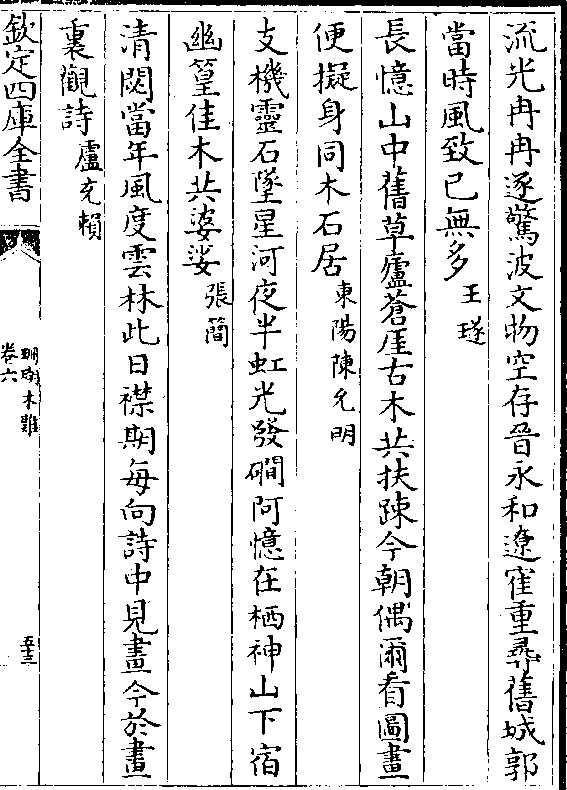 流光冉冉逐驚波文物空存晉永和遼隺重尋舊城郭
當時風致已無多王璲
長憶山中舊草廬蒼厓古木共扶踈今朝偶爾看圖畫
便擬身同木石居東陽陳允明
支機靈石墜星河夜半虹光發磵阿憶在栖神山下宿
幽篁佳木共婆娑張簡
清閟當年風度雲林此日襟期每向詩中見畫今於畫
裏觀詩盧充頼
欽定四庫全書
珊瑚木難
卷六
五十三